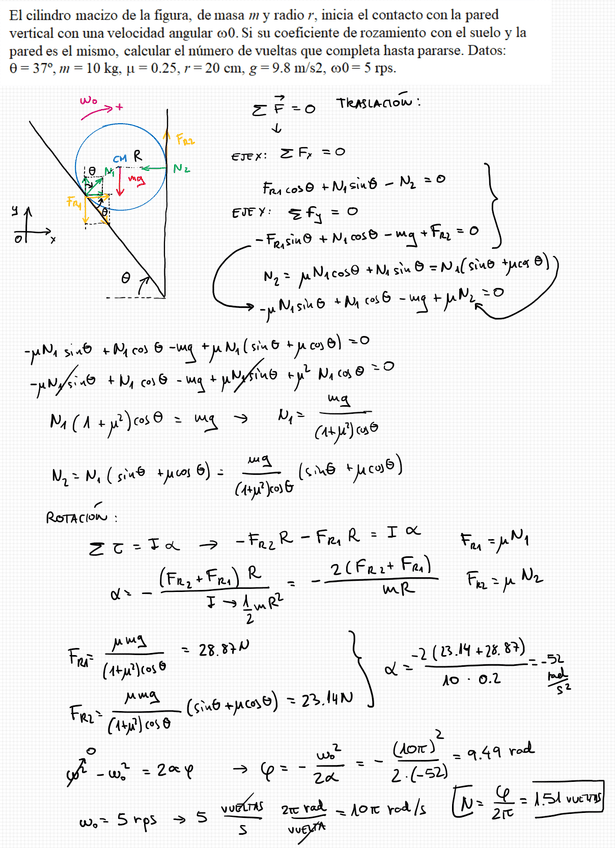 El cilindro macizo de la figura, de masa m y radio r, inicia el contacto con la pared
vertical con una velocidad angular ω0. Si su coeficiente de rozamiento con el suelo y la
pared es el mismo, calcular el número de vueltas que completa hasta pararse. Datos:
θ = 37º, m = 10 kg, μ = 0.25, r = 20 cm, g = 9.8 m/s2, ω0 = 5 rps.
ω₀ +
θ N₁ CM R F_R2
mg N₂
F_R1 θ
y
0 x
θ
Σ F⃗ = 0 TRASLACIÓN:
EJE X: Σ Fx = 0
F_R1 cos θ + N₁ sin θ - N₂ = 0
EJE Y: Σ Fy = 0
-F_R1 sin θ + N₁ cos θ - mg + F_R2 = 0
N₂ = μ N₁ cos θ + N₁ sin θ = N₁ (sin θ + μ cos θ)
-μ N₁ sin θ + N₁ cos θ - mg + μ N₂ = 0
-μ N₁ sin θ + N₁ cos θ - mg + μ N₁ (sin θ + μ cos θ) = 0
-μ N₁ sin θ + N₁ cos θ - mg + μ N₁ sin θ + μ² N₁ cos θ = 0
N₁ (1 + μ²) cos θ = mg → N₁ = mg / (1+μ²) cos θ
N₂ = N₁ (sin θ + μ cos θ) = mg / (1+μ²) cos θ (sin θ + μ cos θ)
ROTACIÓN:
Σ τ = I α → -F_R2 R - F_R1 R = I α F_R1 = μ N₁
α = - (F_R2 + F_R1) R / I → 1/2 mR² = - 2 (F_R2 + F_R1) / mR F_R2 = μ N₂
F_R1 = μ mg / (1+μ²) cos θ = 28.87 N
α = -2 (23.14 + 28.87) / 10 · 0.2 = -52 rad/s²
F_R2 = μ mg / (1+μ²) cos θ (sin θ + μ cos θ) = 23.14 N
ω² 0 - ω₀² = 2 α φ → φ = - ω₀² / 2α = - (10π)² / 2 · (-52) = 9.49 rad
ω₀ = 5 rps → 5 VUELTAS / s 2π rad / VUELTA = 10π rad/s N = φ / 2π = 1.51 VUELTAS